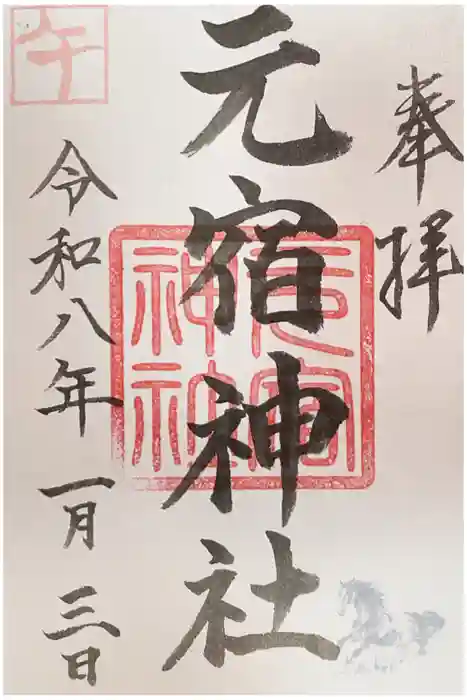 奉拝
元宿神社
元宿神社
令和八年一月三日
午